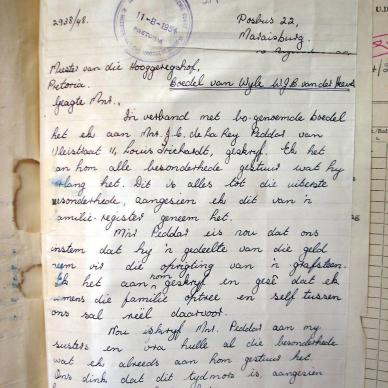 2938/48.
11-8-1954
Posbus 22,
Maraisburg.
Meester van die Hooggeregshof,
Pretoria.
Boedel van Wyle W.J.B. van der Merwe
Geagte Mnr.,
In verband met bo-genoemde boedel
het ek aan Mnr. J.C. de la Rey Peddar van
Vleistraat 11, Louis Trichardt, geskryf. Ek het
aan hom alle besonderhede gestuur wat hy
verlang het. Dit is alles tot die uiterste
besonderhede, aangesien ek dit van 'n
familie-register geneem het.
Mnr Peddar eis nou dat ons
instem dat hy 'n gedeelte van die geld
neem vir die oprigting van 'n grafsteen.
Ek het aan hom geskryf en gesê dat ek
namens die familie optree en self tussen
ons sal reël daarvoor.
Nou skryf Mnr. Peddar aan my
susters en vra hulle al die besonderhede
wat ek alreeds aan hom gestuur het.
Ons dink dat dit tydmors is, aangesien